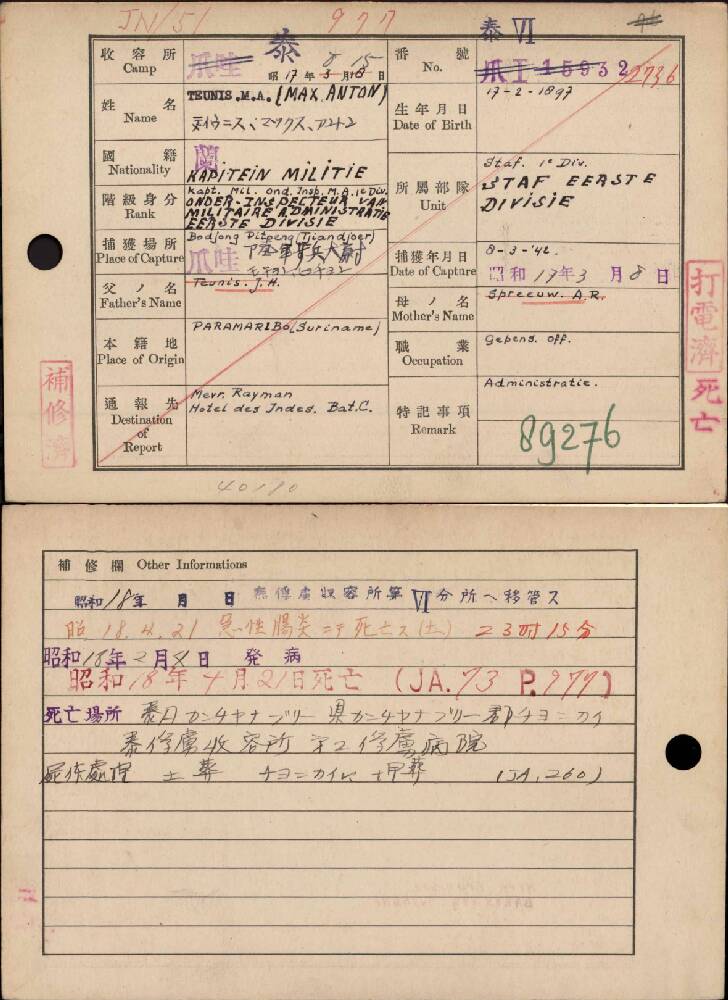 JN/51
977
泰 VI
收容所
Camp
爪哇 泰
昭17年 3月18日
8 15
番號
No.
爪I 15932
2736
姓名
Name
TEUNIS. M.A. (MAX. ANTON)
生年月日
Date of Birth
17-2-1897
國籍
Nationality
蘭
KAPITEIN MILITIE
階級身分
Rank
Kapt. Mil. Ond. Insp. M.A. 1e Div.
ONDER-INSPECTEUR VAN
MILITAIRE ADMINISTRATIE
EERSTE DIVISIE
所属部隊
Unit
Staf. 1e Div.
STAF EERSTE
DIVISIE
捕獲場所
Place of Capture
Bodjong Pitpeng (Tjiandjoer)
爪哇
捕獲年月日
Date of Capture
8-3-'42.
昭和17年3月8日
父ノ名
Father's Name
Teunis. J.H.
母ノ名
Mother's Name
Spreeuw. A.R.
本籍地
Place of Origin
PARAMARIBO (Suriname)
職業
Occupation
Gepens. off.
通報先
Destination
of
Report
Mevr. Rayman
Hotel des Indes. Bat. C.
特記事項
Remark
Administratie.
89276
補修濟
打電濟
死亡
40110
補修欄 Other Informations
昭和18年 月 日 泰俘虜収容所第VI分所へ移管ス
昭 18.4.21 急性腸炎ニテ死亡ス(土) 23時15分
昭和18年2月8日 発病
昭和18年4月21日死亡 (JA.73 P.977)
死亡場所 泰国カンチヤナブリー県カンチヤナブリー郡チヨンカイ
泰俘虜收容所第2俘虜病院
屍体處理 土葬 チヨンカイに埋葬 (JA.260)